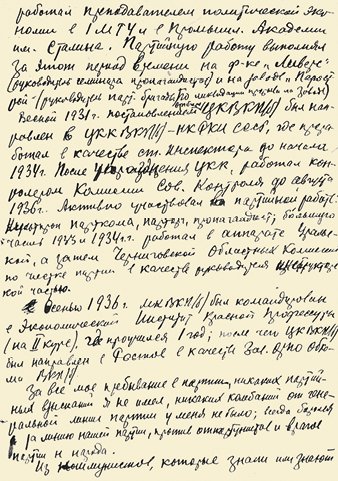 работал преподавателем политической эко-
номии в I МГУ и в Промышл. Академии
им. Сталина. Партийную работу выполнял
за этот период времени на ф-ке "Ливерс"
(руководитель семинара пропагандистов) и на заводе "Парост
рой" (руководитель парт. бригады по ликвидации прорыва на заводе)
Весной 1931г. постановлением ЦКВКП/б/ был нап-
равлен в ЦКК ВКП/б/ - НК РКИ СССР, где прора-
ботал в качестве ст. инспектора до начала
1934г. После упразднения ЦКК, работал кон-
тролером Комиссии Сов. Контроля до августа
1936г. Активно участвовал на партийной работе:
парткома, парторг, пропагандист, большую
часть 1933 и 1934г.г. работал в аппарате
кой, а затем Черниговской Областных Комиссий
по чистке партии в качестве руководителя
кой частью.
Осенью 1936г. МКВКП/б/ был командирован
в Экономический Институт Красной Профессуры
(на II курс). где проучился 1 год; после чего ЦКВКП/б/
был направлен в Ростов в качестве Зав. ОРПО Обко-
ма ВКП/б/
За все мое пребывание в партии, никаких партий-
ных взысканий я не имел, никаких колебаний от гене-
ральной линии партии у меня не было; всегда боролся
за линию нашей партии, против оппортунистов и врагов
партии и народа.
Из коммунистов, которые знали или знают